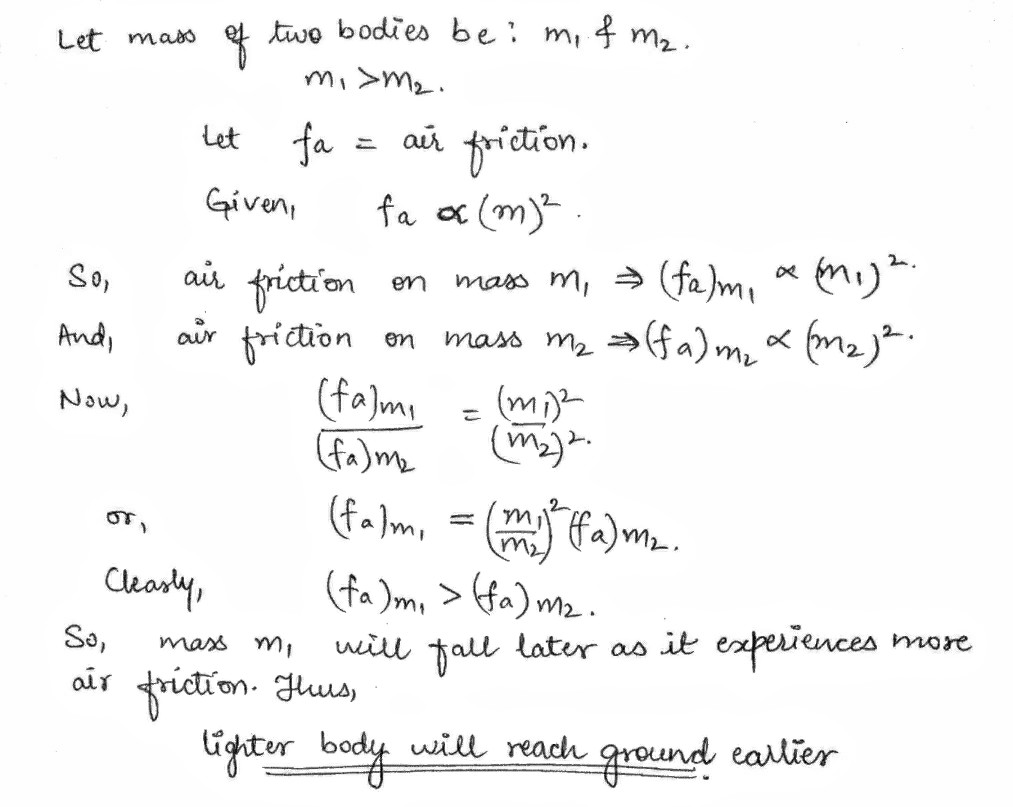 Let mass of two bodies be : m₁ & m₂.
m₁ > m₂.
Let fa = air friction.
Given, fa ∝ (m)².
So, air friction on mass m₁ ⇒ (fa)m₁ ∝ (m₁)².
And, air friction on mass m₂ ⇒ (fa)m₂ ∝ (m₂)².
Now, (fa)m₁ / (fa)m₂ = (m₁)² / (m₂)².
or, (fa)m₁ = (m₁/m₂)² (fa)m₂.
Clearly, (fa)m₁ > (fa)m₂.
So, mass m₁ will fall later as it experiences more
air friction. Thus,
lighter body will reach ground earlier